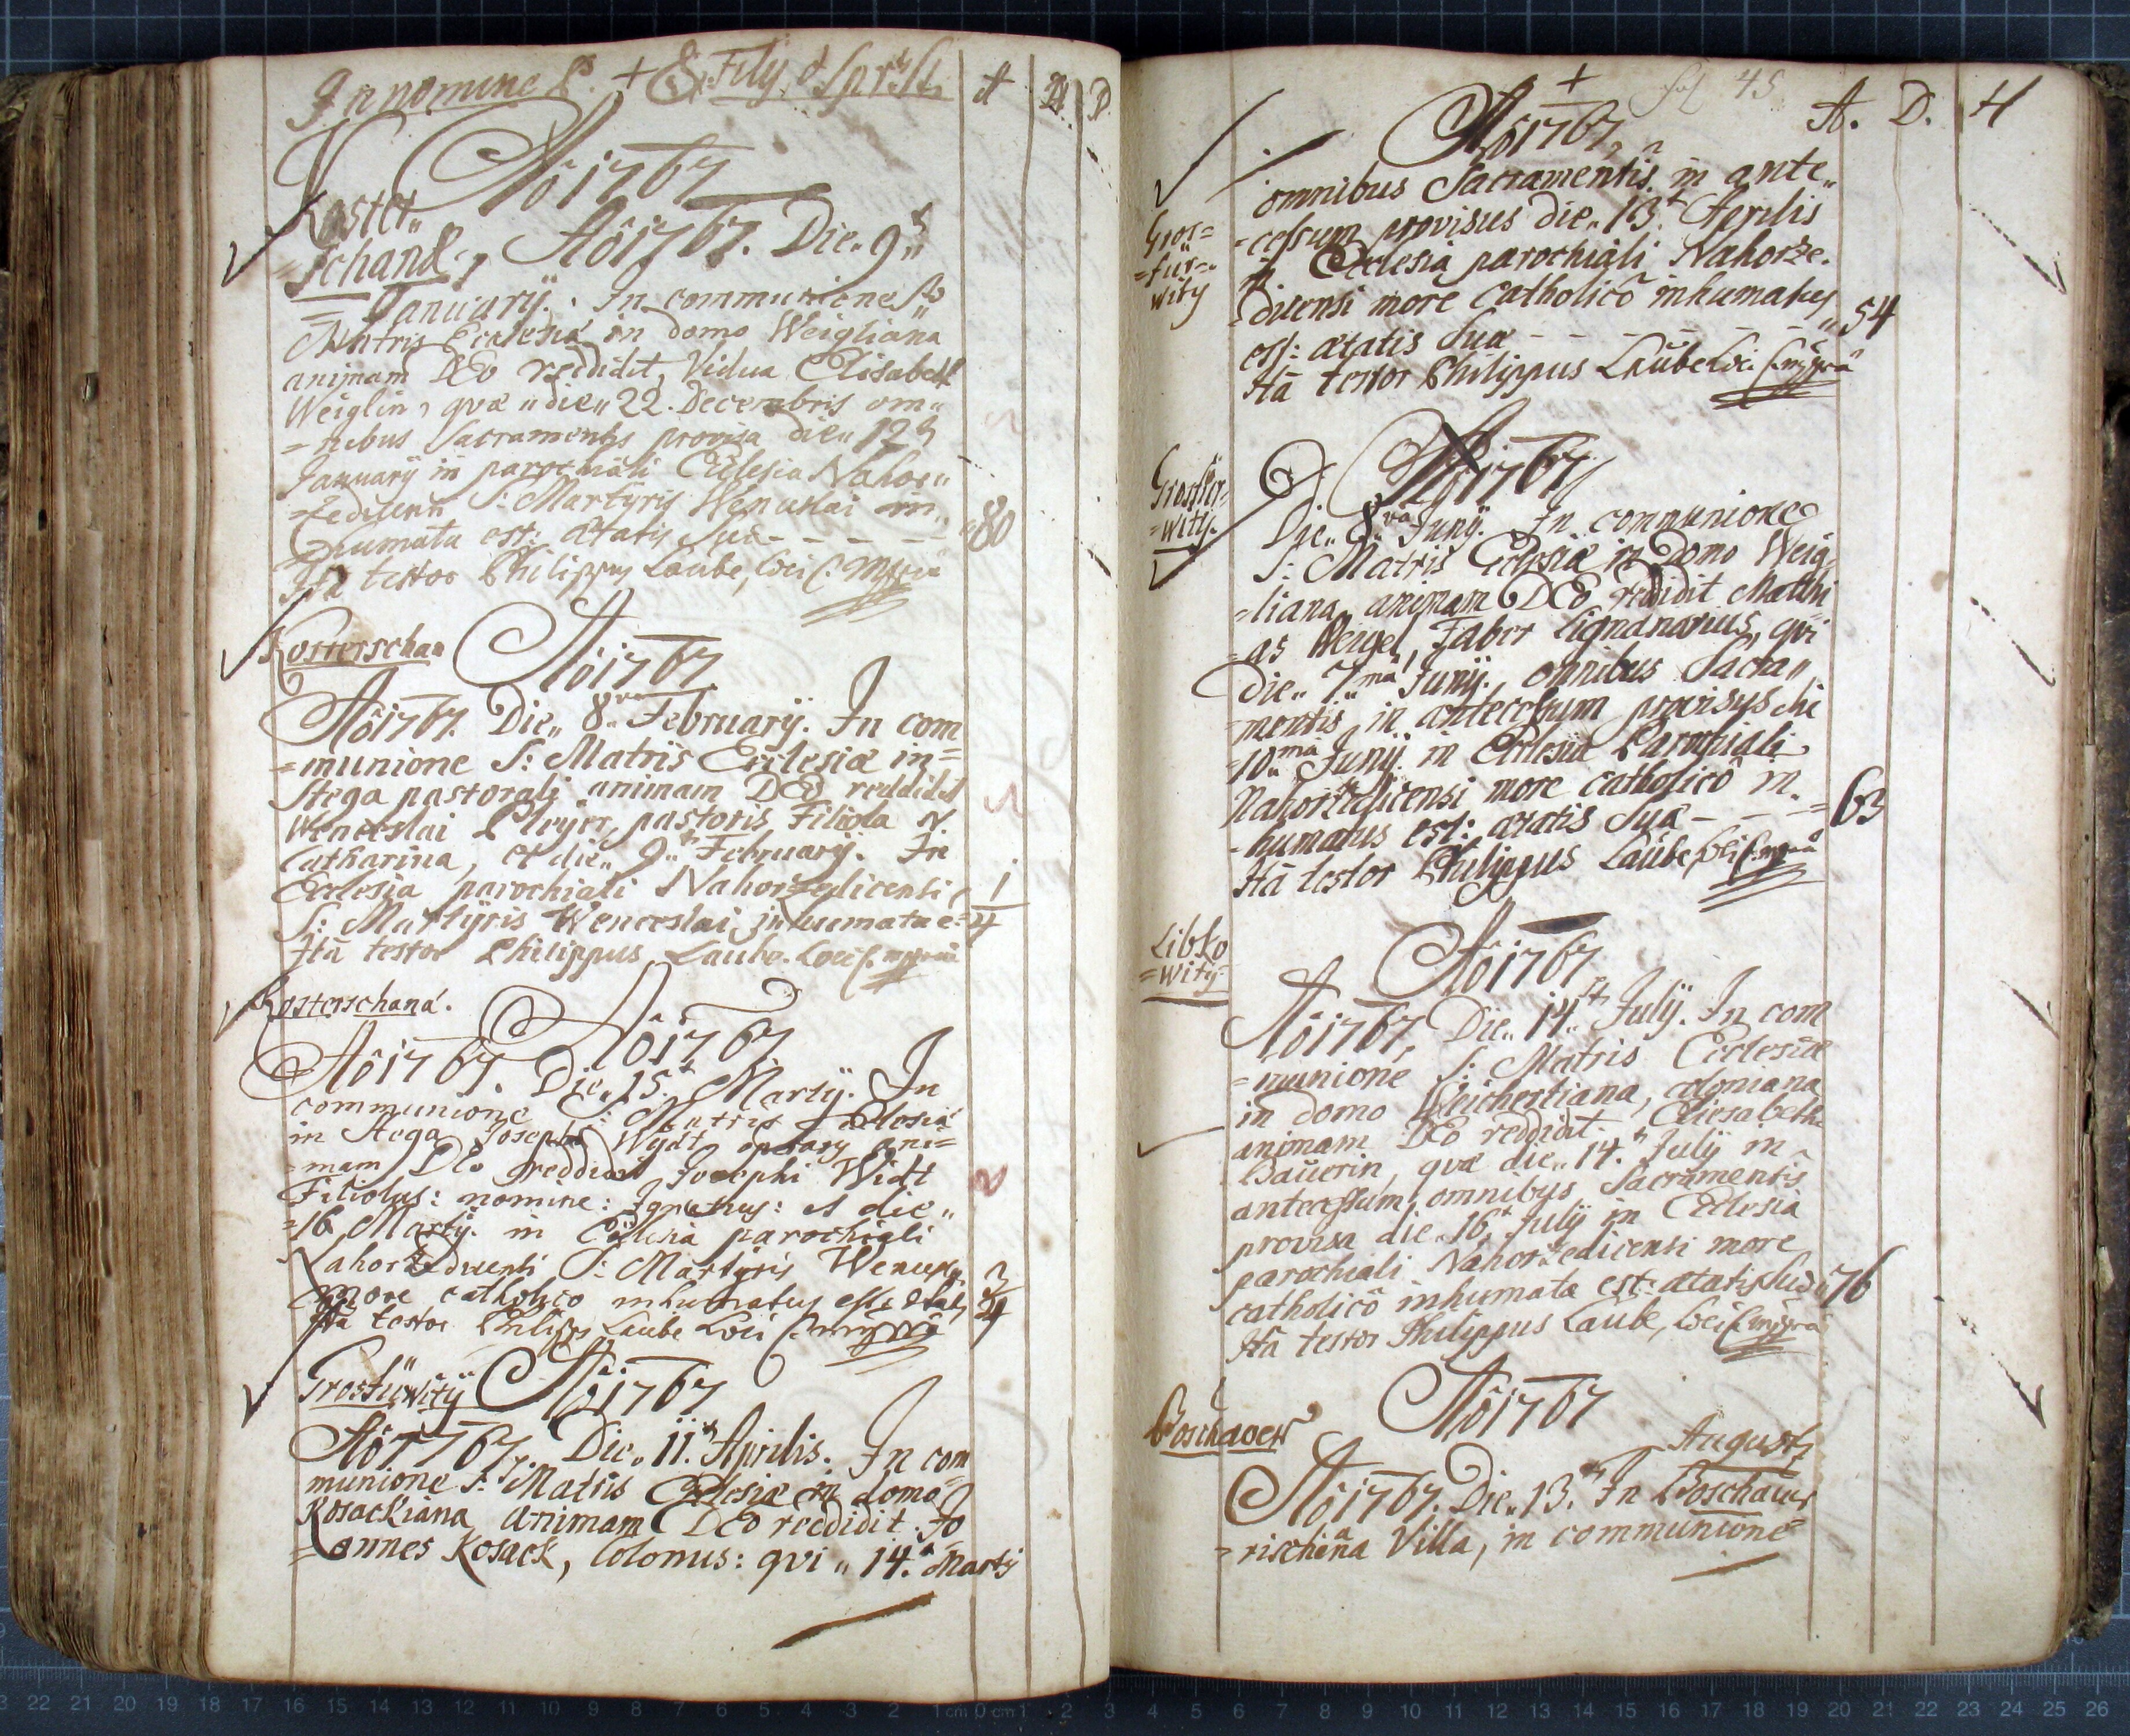 In nomine P. + & Filij & Sprts Sti
A D
Aô 1767
Koster„
=schand. Aô 1767. Die„ 9„
= Januarij. In communione S„
Matris Ecclesiæ in domo Weigliana
animam DEo reddidit, Vidua Elisabeth
Weiglin, qvæ „ die „ 22. Decembris om„
=nibus Sacramentis provisa die„ 12
Januarij in parochiali Ecclesia Nahor„
S: Martyris Wenceslai in„
humata est: ætatis Suæ - - - - „80
Ità testor Philippus Laube, Loci C. mppriâ
Kosterschan Aô 1767
Aô 1767. Die„ 8„va February. In com
=munione S: Matris Ecclesiæ in=
Stega pastorali animam DEo reddidit
Wenceslai pastoris Filiola N.
Catharina, et die„ 9„ February. In
Ecclesia parochiali Nahorzedlicensi 1
S: Martyris Wenceslai inhumata e= 4
Ità testor Philippus Laube. Loci C. mppriâ
Kosterschand. Aô 1767
Aô 1767. Die„ 15. Martij. In
communione S: Matris Ecclesiæ
in Stega Josephi Wydt, ani=
=mam DEo reddidit Josephi Widt
Filiolus: nomine: Ignatius: et die„
=16 Martij. in Ecclesia parochiali
S: Martyris 3
more catholico inhumatus 4
Ità testor Philipp Laube Loci C. mppriâ
Grosfürwitz Aô 1767
Aô 1767. Die„ 11. Aprilis. In com
munione S: Matris Ecclesiæ in domo
Kosackiana animam DEo reddidit Jo
=annes Kosack, Colonus: qvi „ 14. Martij
+ fol 45
Aô 1767 A. D. H
omnibus Sacramentis in ante„
Gros=
=für=
witz
=cessum provisus die„ 13 Aprilis
in Ecclesia parochiali Nahorze.
=dicensi more catholicô inhumatus
est: ætatis Suæ - - - - - - „54
Ità testor Philippus Laube Loci C. mppriâ
Aô 1767
Grosfür=
=witz.
Die„ 8„va Junij. In communione
S: Matris Ecclesiæ in Domo Weig
=liana animam DEo reddidit Matthi
=as Weigel, Faber lignanarius, qvi
die„ 7„ma Junij. omnibus Sacra„
mentis in antecessum provisus die
10„ma Junij in Ecclesia Parochiali
Nahorzedlicensi more catholicô in„
-humatus est: ætatis Suæ - - - = 63
Ità testor Philippus Laube, Loci C. mppriâ
Libko
=witz
Aô 1767
Aô 1767, Die„ 14„ July. In com
=munione S: Matris Ecclesiæ
in domo Weichertiana, coloniana
animam DEo reddidit. Eliesabeth
Bauerin, qvæ die„ 14. July in
antecessum, omnibus Sacramentis
provisa die„ 16 July in Ecclesia
parochiali Nahorzedicensi more
catholicô inhumata est: ætatis suæ „76
Ità testor Philippus Laube, Loci C. mppriâ
Aô 1767
Boschauer Augusti
Aô 1767. Die„ 13. In Boschaue
=rischiana Villa, in communione